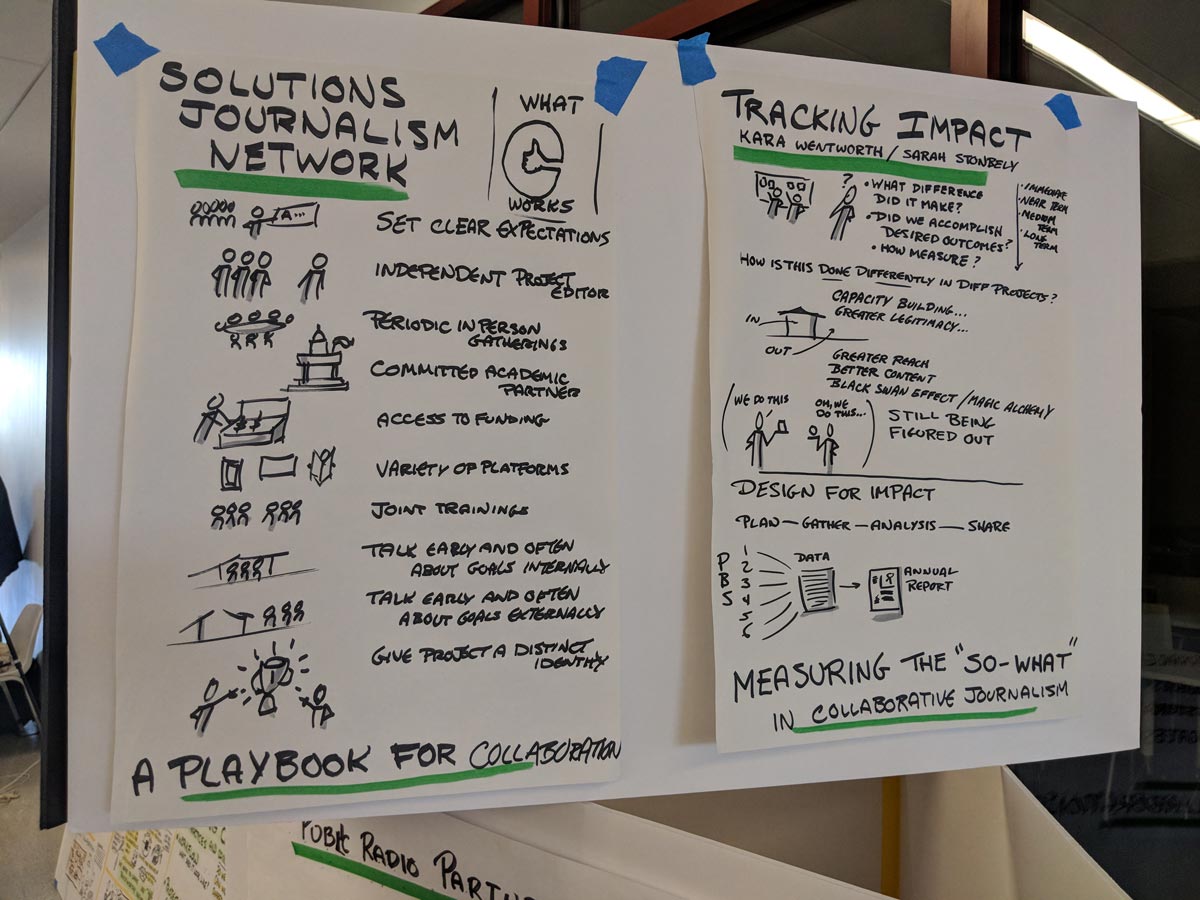 SOLUTIONS
JOURNALISM
NETWORK
WHAT
WORKS
A...
SET CLEAR EXPECTATIONS
INDEPENDENT PROJECT
EDITOR
PERIODIC IN PERSON
GATHERINGS
COMMITTED ACADEMIC
PARTNER
ACCESS TO FUNDING
VARIETY OF PLATFORMS
JOINT TRAININGS
TALK EARLY AND OFTEN
ABOUT GOALS INTERNALLY
TALK EARLY AND OFTEN
ABOUT GOALS EXTERNALLY
GIVE PROJECT A DISTINCT
IDENTITY
A PLAYBOOK FOR COLLABORATION
TRACKING IMPACT
KARA WENTWORTH / SARAH STONBELY
?
• WHAT DIFFERENCE
DID IT MAKE?
• DID WE ACCOMPLISH
DESIRED OUTCOMES?
• HOW MEASURE?
• IMMEDIATE
• NEAR TERM
• MEDIUM
TERM
• LONG
TERM
HOW IS THIS DONE DIFFERENTLY IN DIFF PROJECTS?
CAPACITY BUILDING...
GREATER LEGITIMACY...
IN
OUT
GREATER REACH
BETTER CONTENT
BLACK SWAN EFFECT / MAGIC ALCHEMY
WE DO THIS
OH, WE
DO THIS...
STILL BEING
FIGURED OUT
DESIGN FOR IMPACT
PLAN — GATHER — ANALYSIS — SHARE
PBS
1
2
3
4
5
6
DATA
ANNUAL
REPORT
MEASURING THE "SO-WHAT"
IN COLLABORATIVE JOURNALISM
RADIO